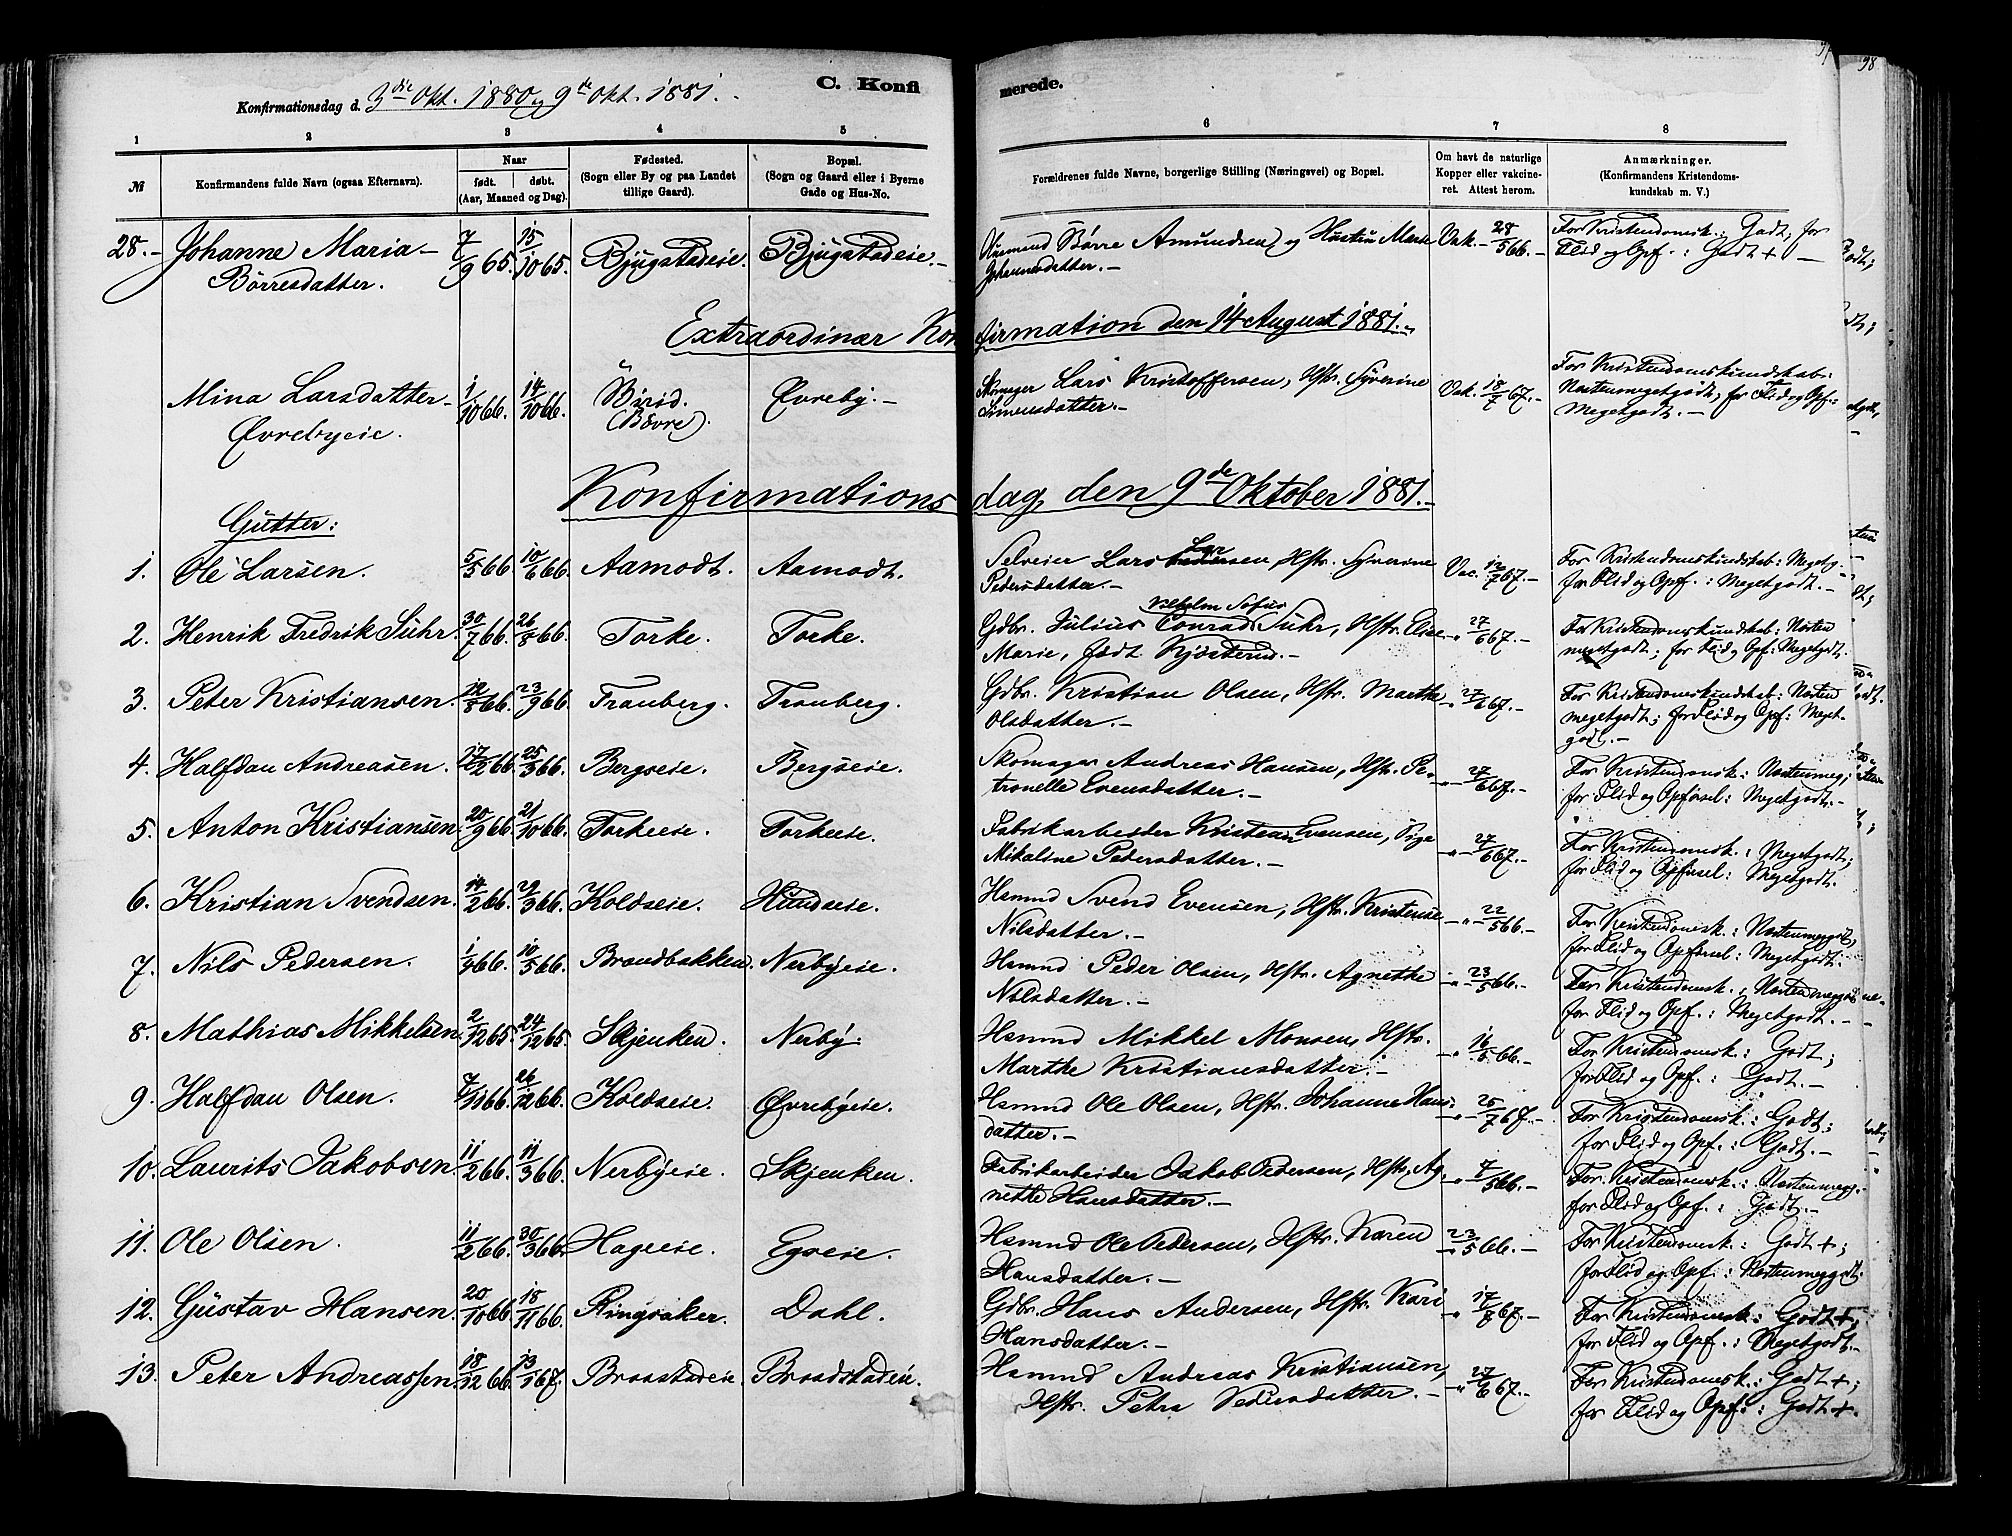 97
98
Konfirmationsdag d. 3die Okt. 1880 og 9de Okt. 1881.
C. Konfirmerede.
1 2 3 4 5 6 7 8
№
Konfirmandens fulde Navn (ogsaa Efternavn).
Naar
født. døbt.
(Aar, Maaned og Dag).
Fødested.
(Sogn eller By og paa Landet
tillige Gaard).
Bopæl.
(Sogn og Gaard eller i Byerne
Gade og Hus-No.
Forældrenes fulde Navne, borgerlige Stilling (Næringsvei) og Bopæl.
Om havt de naturlige
Kopper eller vakcine-
ret. Attest herom.
Anmærkninger.
(Konfirmandens Kristendoms-
kundskab m. V.)
28. Johanne Maria 7/9 65. 15/10 65. Bjugstadeie. Bjugstadeie. Husmand Børre Amundsen og Hustru Marie Vak. 28/5 66. For Kristendomsk.: Godt; for
Børresdatter. Johannesdatter. Flid og Opf.: Godt +
Extraordinær Konfirmation den 14 August 1881.
Mina Larsdatter 1/10 66. 14/10 66. Birid. Øvreby. Skomager Lars Kristoffersen, Hstr. Syverine Vak. 18/7 67. For Kristendomskundskab:
Øvrebyeie. (Bøvre). Simensdatter. Næstenmegetgodt; for Flid og Opf.:
Megetgodt.
Konfirmationsdag den 9de Oktober 1881.
Gutter:
1. Ole Larsen. 5/5 66. 10/6 66. Aamodt. Aamodt. Selveier Lars Larsen, Hstr. Syverine Vac. 12/7 67. For Kristendomskundskab: Megetg.
Pedersdatter. for Flid og Opf.: Megetgodt.
2. Henrik Fredrik Suhr. 30/7 66. 26/8 66. Torke. Torke. Gdbr. Julius Vilhelm Sofus Conrad Suhr, Hstr. Elise 27/6 67. For Kristendomskundskab: Næsten
Marie, født Kjøsterud. megetgodt; for Flid og Opf: Megetgdt.
3. Peter Kristiansen. 12/8 66. 23/9 66. Tranberg. Tranberg. Gdbr. Kristian Olsen, Hstr. Marthe 27/6 67. For Kristendomskundskab: Næsten
Olsdatter. megetgodt; for Flid og Opf: Meget-
godt.
4. Halfdan Andreasen. 17/2 66. 25/3 66. Bergseie. Bergseie. Skomager Andreas Hansen, Hstr. Pe- 27/6 67. For Kristendomsk.: Næstenmeg;
tronelle Evensdatter. for Flid og Opførsel: Megetgodt.
5. Anton Kristiansen. 20/9 66. 21/10 66. Torkeeie. Torkeeie. Fabrikarbeider Kristian Evensen, Pige 27/6 67. For Kristendomsk.: Megetgodt;
Mikaline Pedersdatter. for Flid og Opførsel: Megetgodt.
6. Kristian Svendsen. 14/2 66. 29/3 66. Koldseie. Hundseie. Hsmnd Svend Evensen, Hstr. Kristense 22/5 66. For Kristendomsk.: Næstenmeggodt,
Nilsdatter. for Flid og Opførsel: Megetgodt.
7. Nils Pedersen. 1/4 66. 10/5 66. Brandbakken. Nerbyeie. Hsmnd Peder Olsen, Hstr. Agnethe 23/5 66. For Kristendomsk.: Næstenmeggodt
Nilsdatter. for Flid og Opf.: Megetgodt.
8. Mathias Mikkelsen. 2/12 65. 24/12 65. Skjenken. Nerby. Hsmnd Mikkel Monsen, Hstr. 16/5 66. For Kristendomsk.: Godt;
Marthe Kristiansdatter. for Flid og Opf.: Godt.
9. Halfdan Olsen. 7/11 66. 26/12 66. Koldseie. Øvrebyeie. Hsmnd Ole Olsen, Hstr. Johanne Hans- 25/7 67. For Kristendomsk.: Godt;
datter. for Flid og Opf.: Godt.
10. Laurits Jakobsen. 11/2 66. 11/3 66. Nerbyeie. Skjenken. Fabrikarbeider Jakob Pedersen, Hstr. Ag- 7/5 66. For Kristendomsk.: Næstenmegg.
nethe Hansdatter. for Flid og Opf.: Godt.
11. Ole Olsen. 11/2 66. 30/3 66. Hageeie. Egseie. Hsmnd Ole Pedersen, Hstr. Karen 23/5 66. For Kristendomsk.: Godt +;
Hansdatter. for Flid og Opf.: Næstenmeggodt.
12. Gustav Hansen. 20/10 66. 18/11 66. Ringsaker. Dahl. Gdbr. Hans Andersen, Hstr. Kari 17/7 67. For Kristendomsk.: Godt +;
Hansdatter. for Flid og Opf.: Megetgodt.
13. Peter Andreassen. 18/12 66. 13/1 67. Braastadeie. Braadstadeie. Hsmnd Andreas Kristiansen, 27/6 67. For Kristendomsk.: Godt +;
Hstr. Petra Pedersdatter. for Flid og Opf.: Godt +.